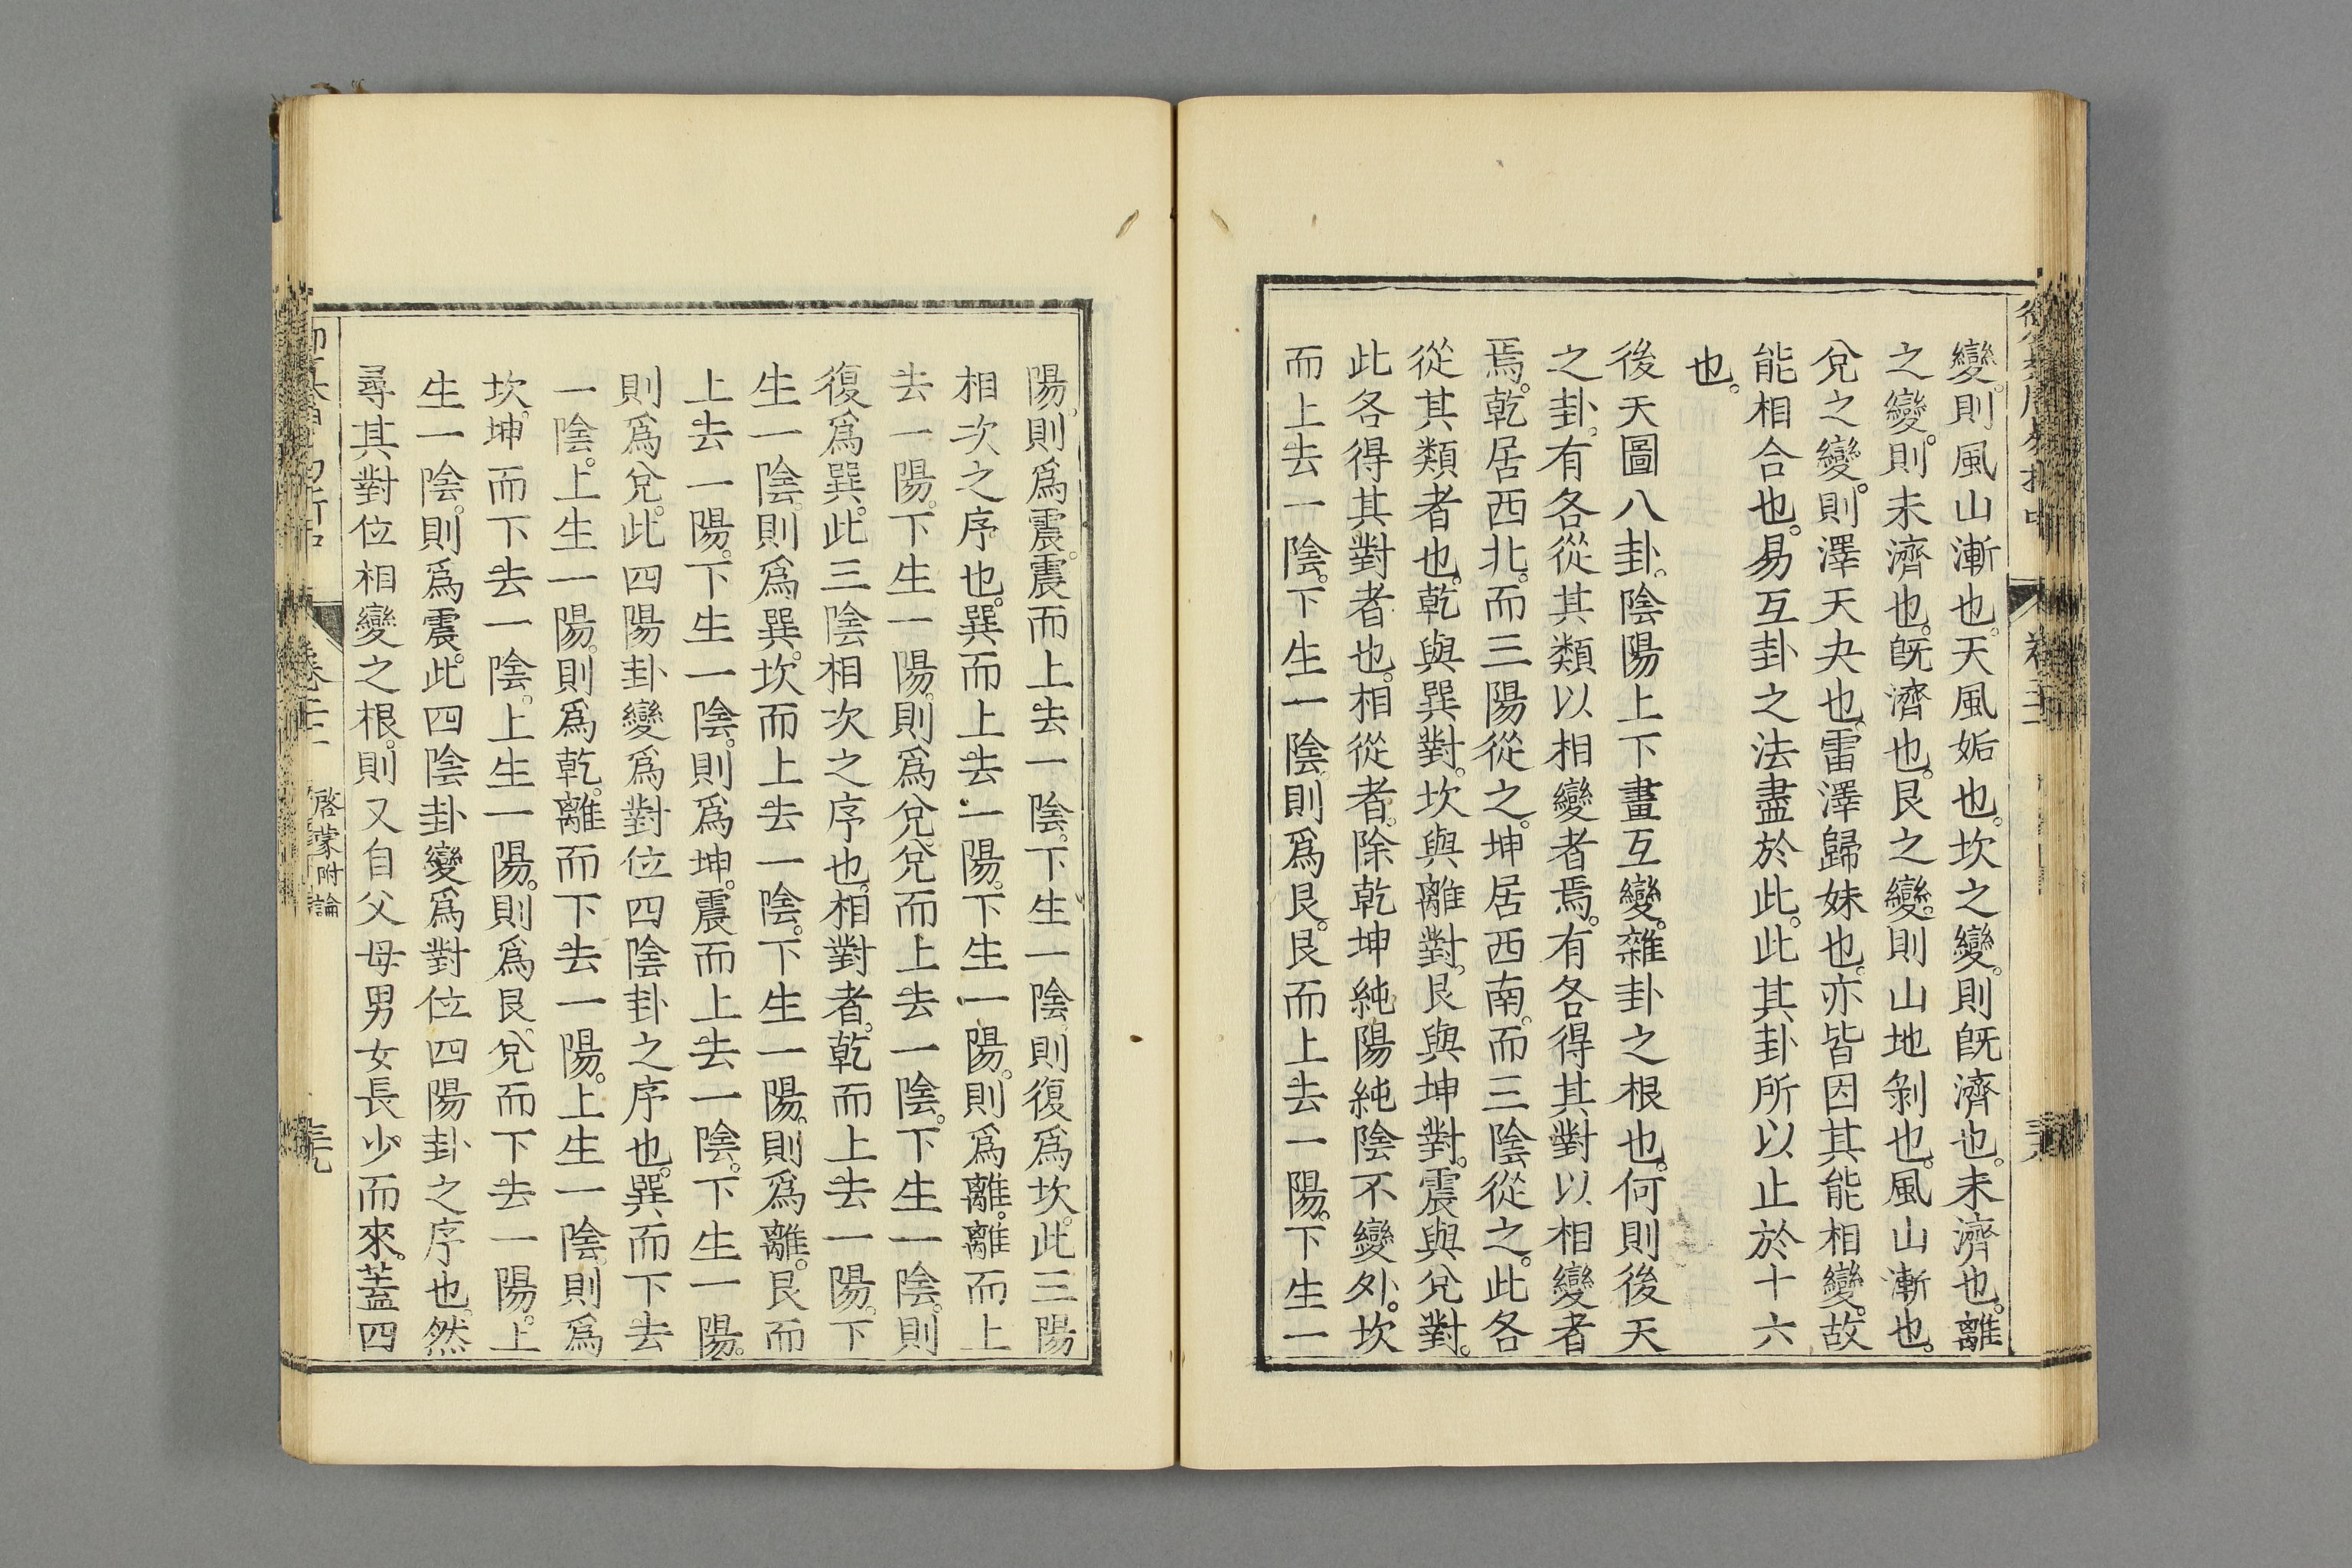 變則風山漸也天風姤也坎之變則旣濟也未濟也離
之變則未濟也旣濟也艮之變則山地剝也風山漸也
兌之變則澤天夬也雷澤歸妹也亦皆因其能相變故
能相合也易互卦之法盡於此此其卦所以止於十六
也
後天圖八卦陰陽上下畫互變雜卦之根也何則後天
之卦有各從其類以相變者焉有各得其對以相變者
焉乾居西北而三陽從之坤居西南而三陰從之此各
從其類者也乾與巽對坎與離對艮與坤對震與兌對
此各得其對者也相從者除乾坤純陽純陰不變外坎
而上去一陰下生一陰則爲艮艮而上去一陽下生一
陽則爲震震而上去一陰下生一陰則復爲坎此三陽
相次之序也巽而上去一陽下生一陽則爲離離而上
去一陽下生一陽則爲兌兌而上去一陰下生一陰則
復爲巽此三陰相次之序也相對者乾而上去一陽下
生一陰則爲巽坎而上去一陰下生一陽則爲離艮而
上去一陽下生一陰則爲坤震而上去一陰下生一陽
則爲兌此四陽卦變爲對位四陰卦之序也巽而下去
一陰上生一陽則爲乾離而下去一陽上生一陰則爲
坎坤而下去一陰上生一陽則爲艮兌而下去一陽上
生一陰則爲震此四陰卦變爲對位四陽卦之序也然
尋其對位相變之根則又自父母男女長少而來蓋四
啓蒙附論